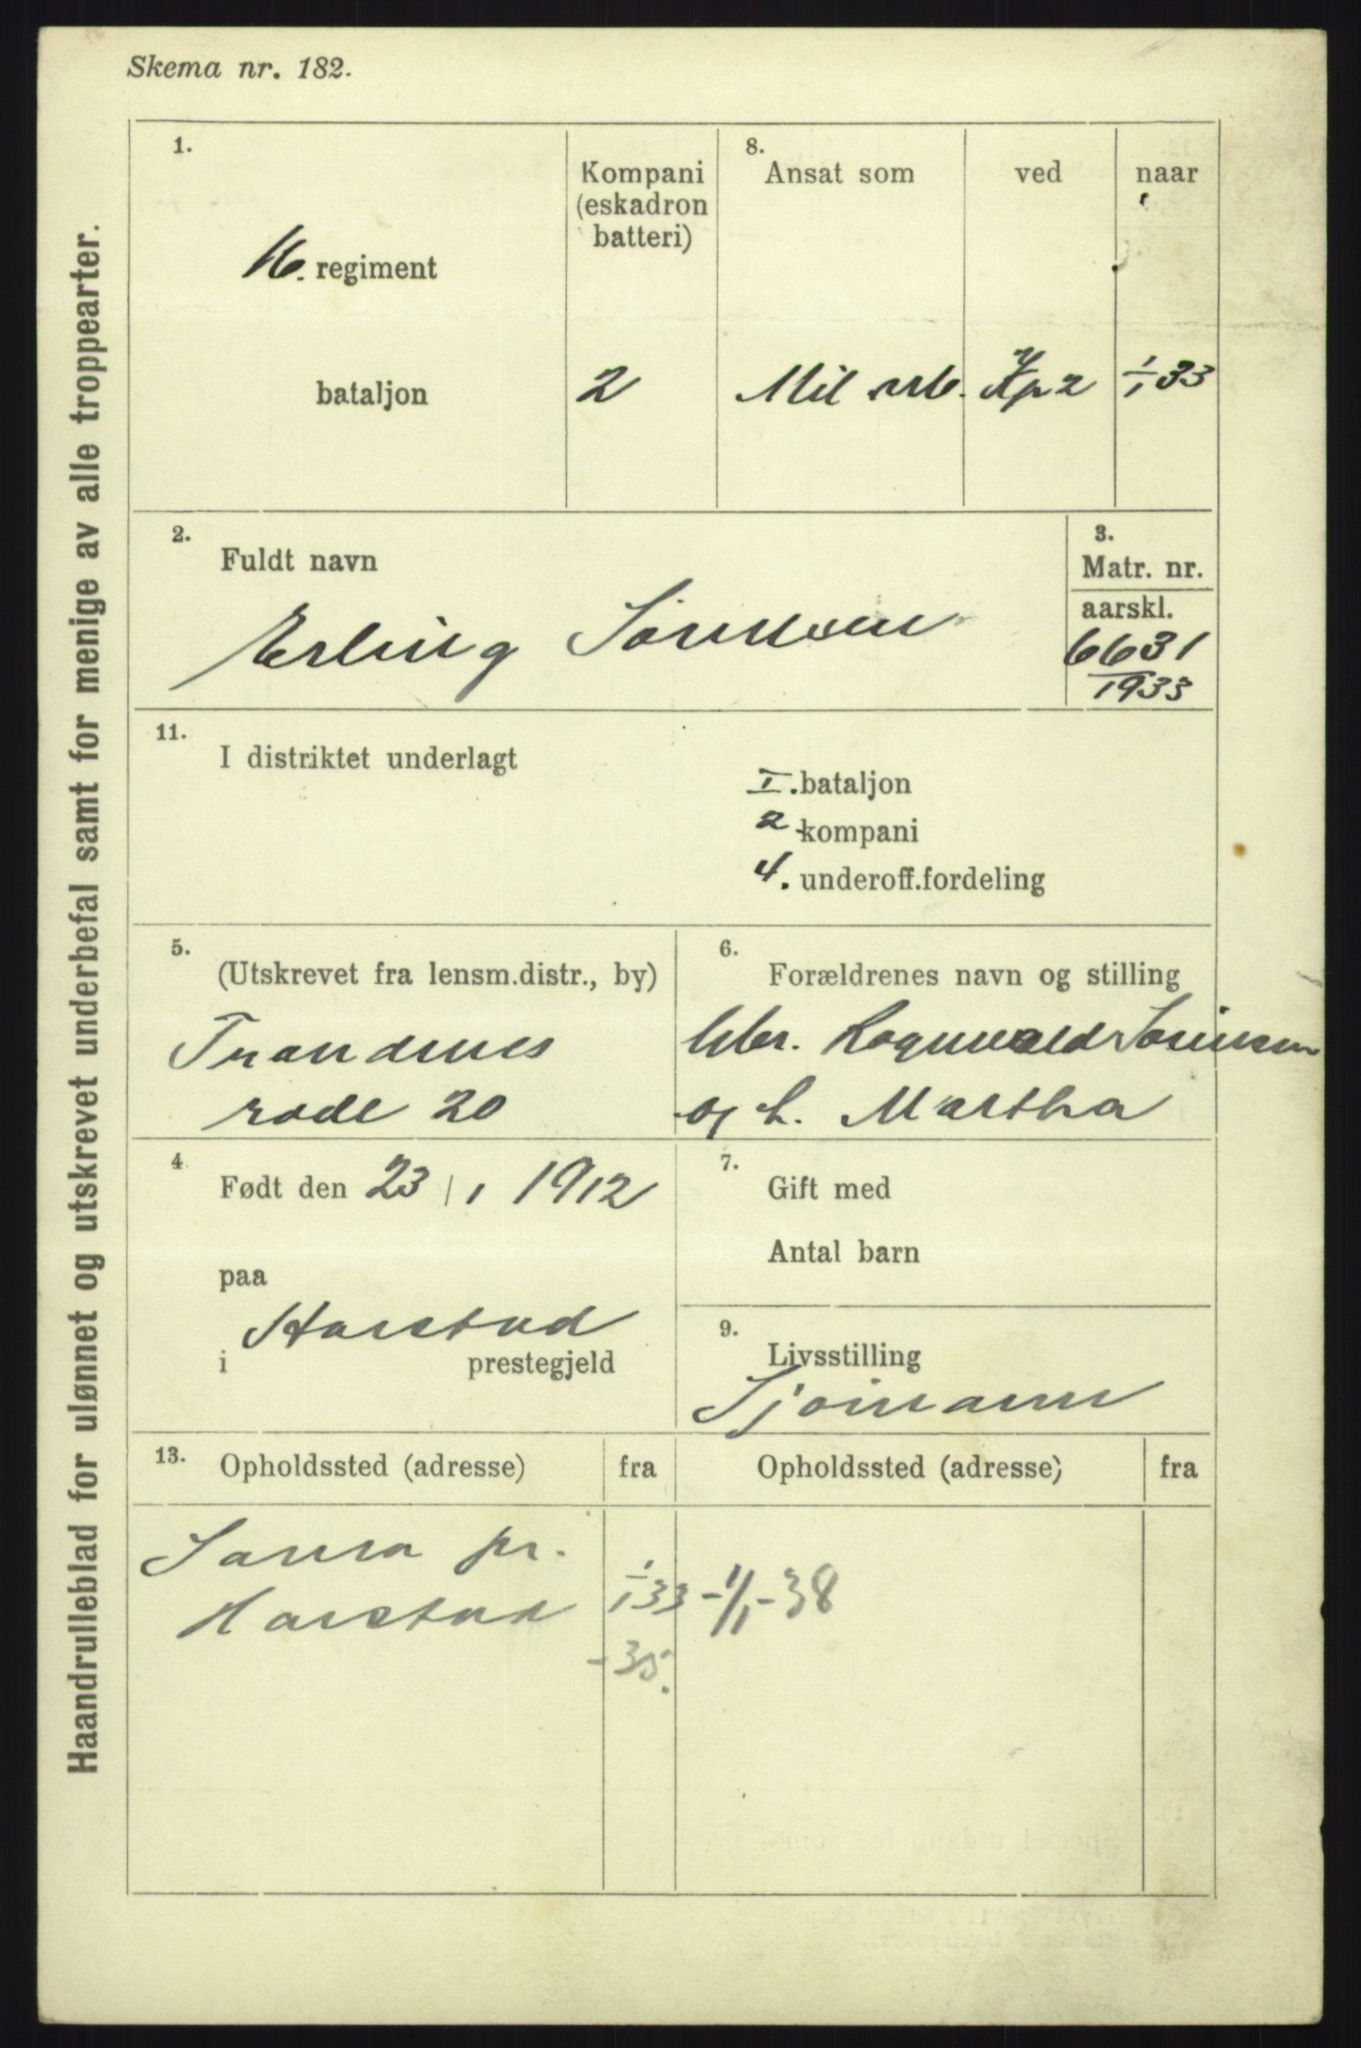 Skema nr. 182.
Haandrulleblad for ulønnet og utskrevet underbefal samt for menige av alle troppearter.
1.
16. regiment
bataljon
Kompani
(eskadron
batteri)
2
8.
Ansat som
Mil. arb.
ved
Kp 2
naar
1/1 33
2.
Fuldt navn
Erling Sörensen
3.
Matr. nr.
aarskl.
6631
1933
11.
I distriktet underlagt
I. bataljon
2 kompani
4. underoff.fordeling
5.
(Utskrevet fra lensm.distr., by)
Trondenes
rode 20
6.
Forældrenes navn og stilling
Arb. Ragnvald Sörensen
og h. Martha
4
Født den 23/1 1912
paa
Harstad
i prestegjeld
7.
Gift med
Antal barn
9.
Livsstilling
Sjömann
13.
Opholdssted (adresse) fra Opholdssted (adresse) fra
Sama pr.
Harstad 1/1 33 - 1/1 - 38
- 35.